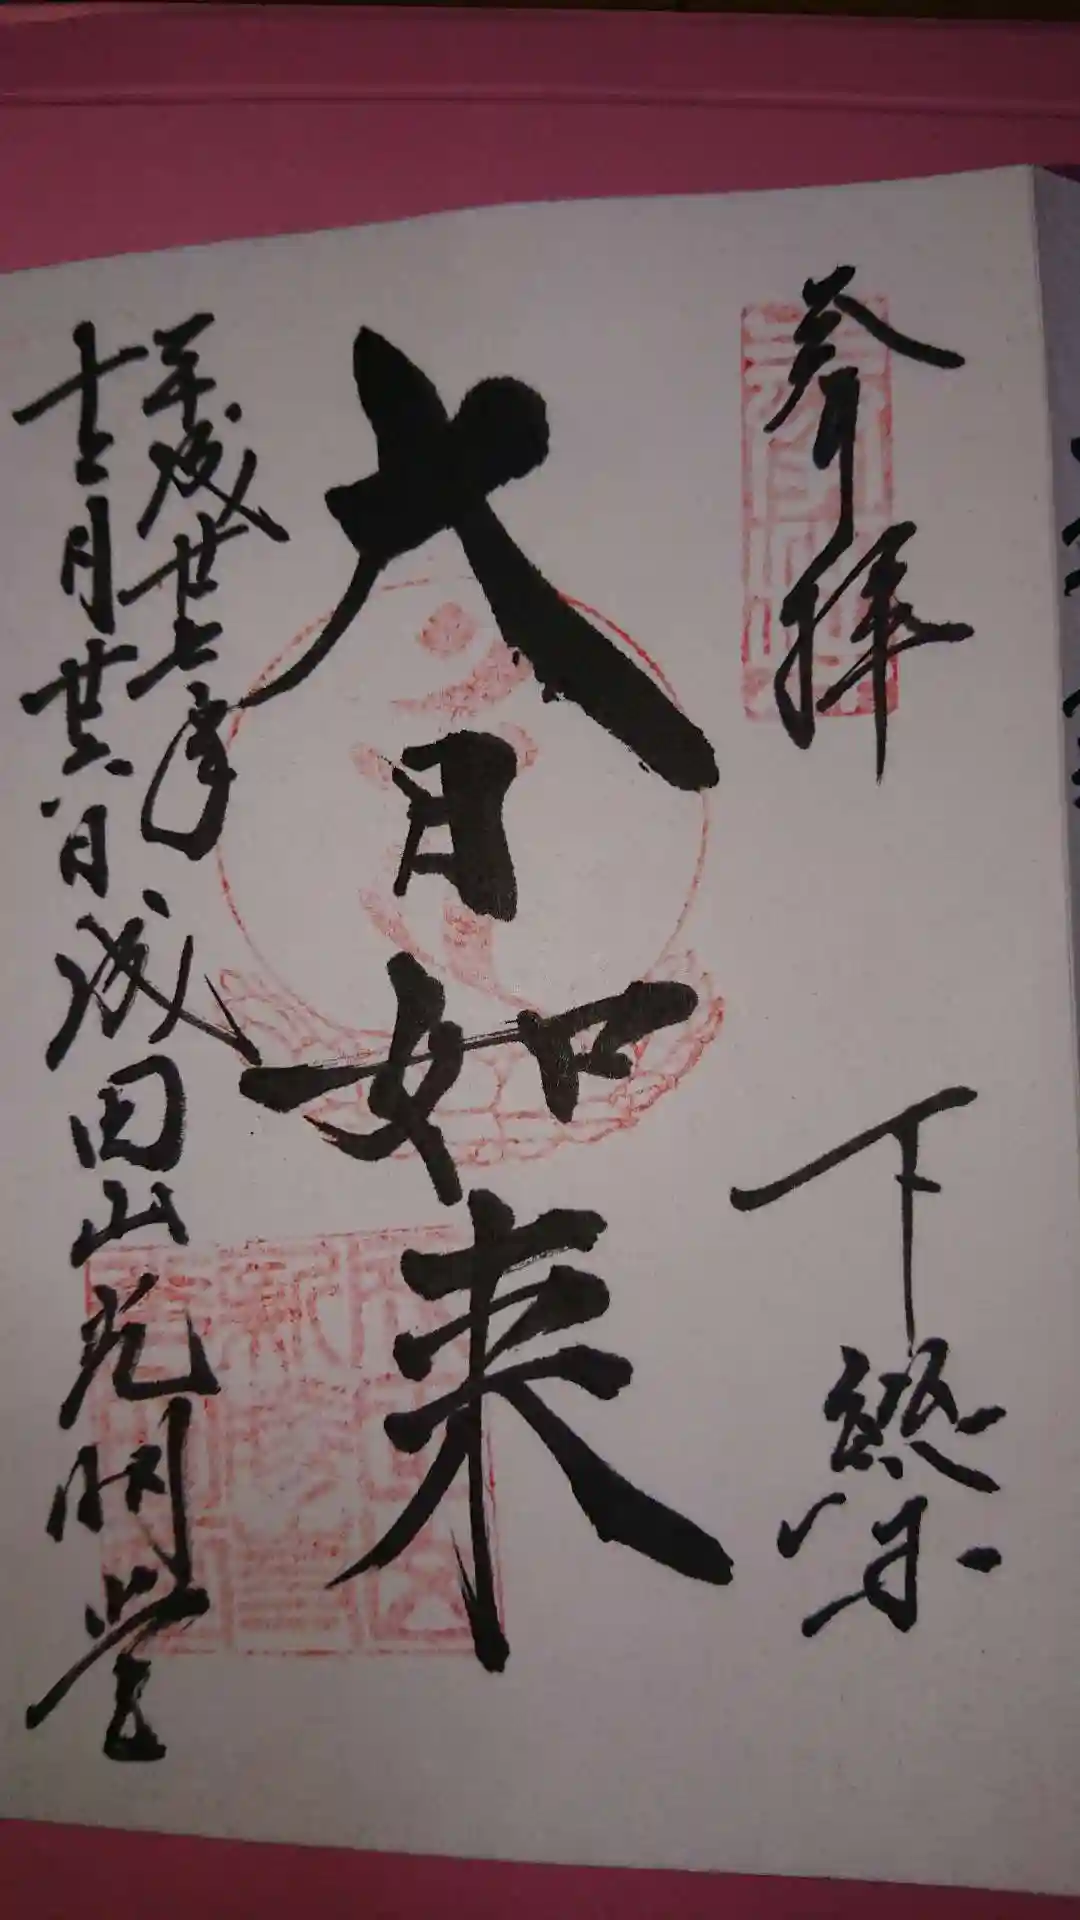 奉拝
下総成田
大日如来
平成廿七年
十二月廿六日成田山光明堂